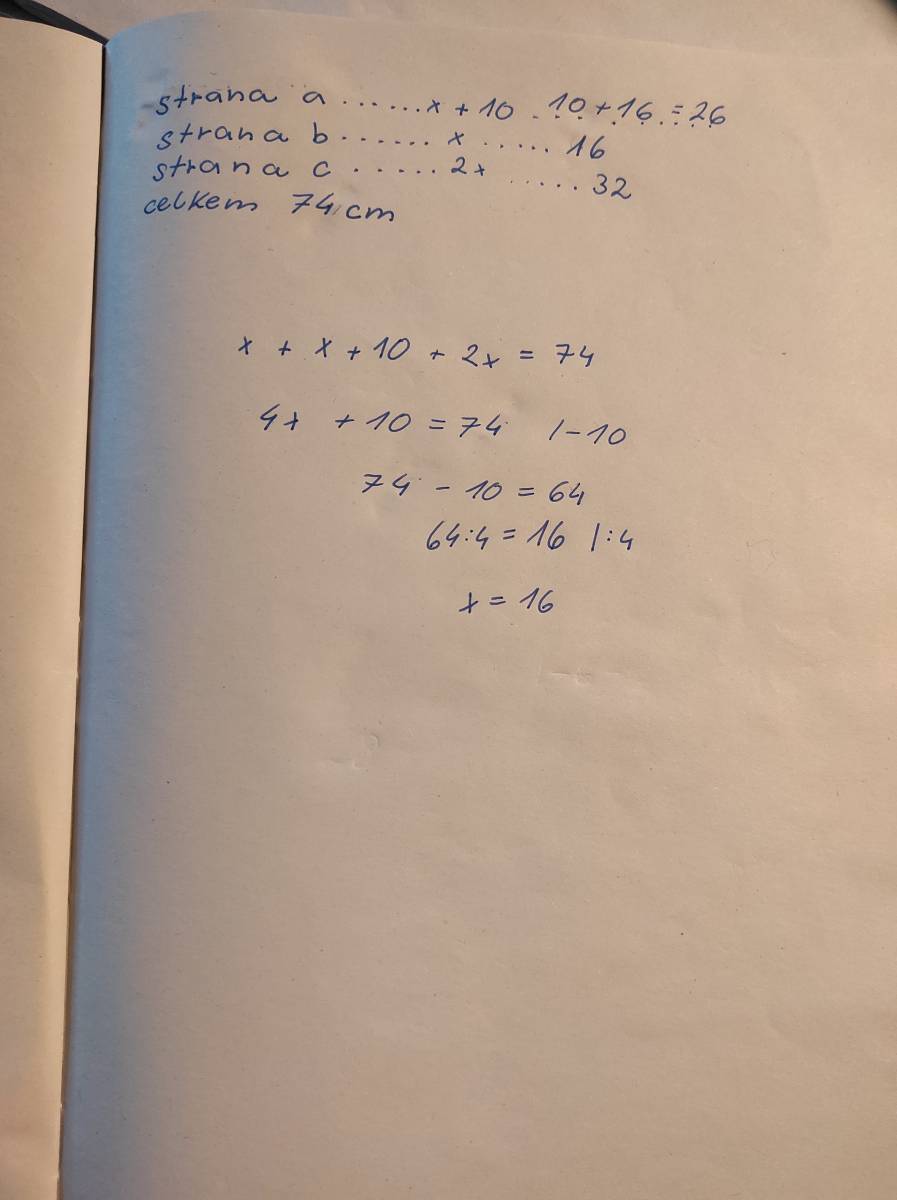 strana a ......x + 10 . 10 + 16 = 26
strana b ...... x ..... 16
strana c ..... 2x ..... 32
celkem 74 cm
x + x + 10 + 2x = 74
4x + 10 = 74 /-10
74 - 10 = 64
64:4 = 16 /:4
x = 16